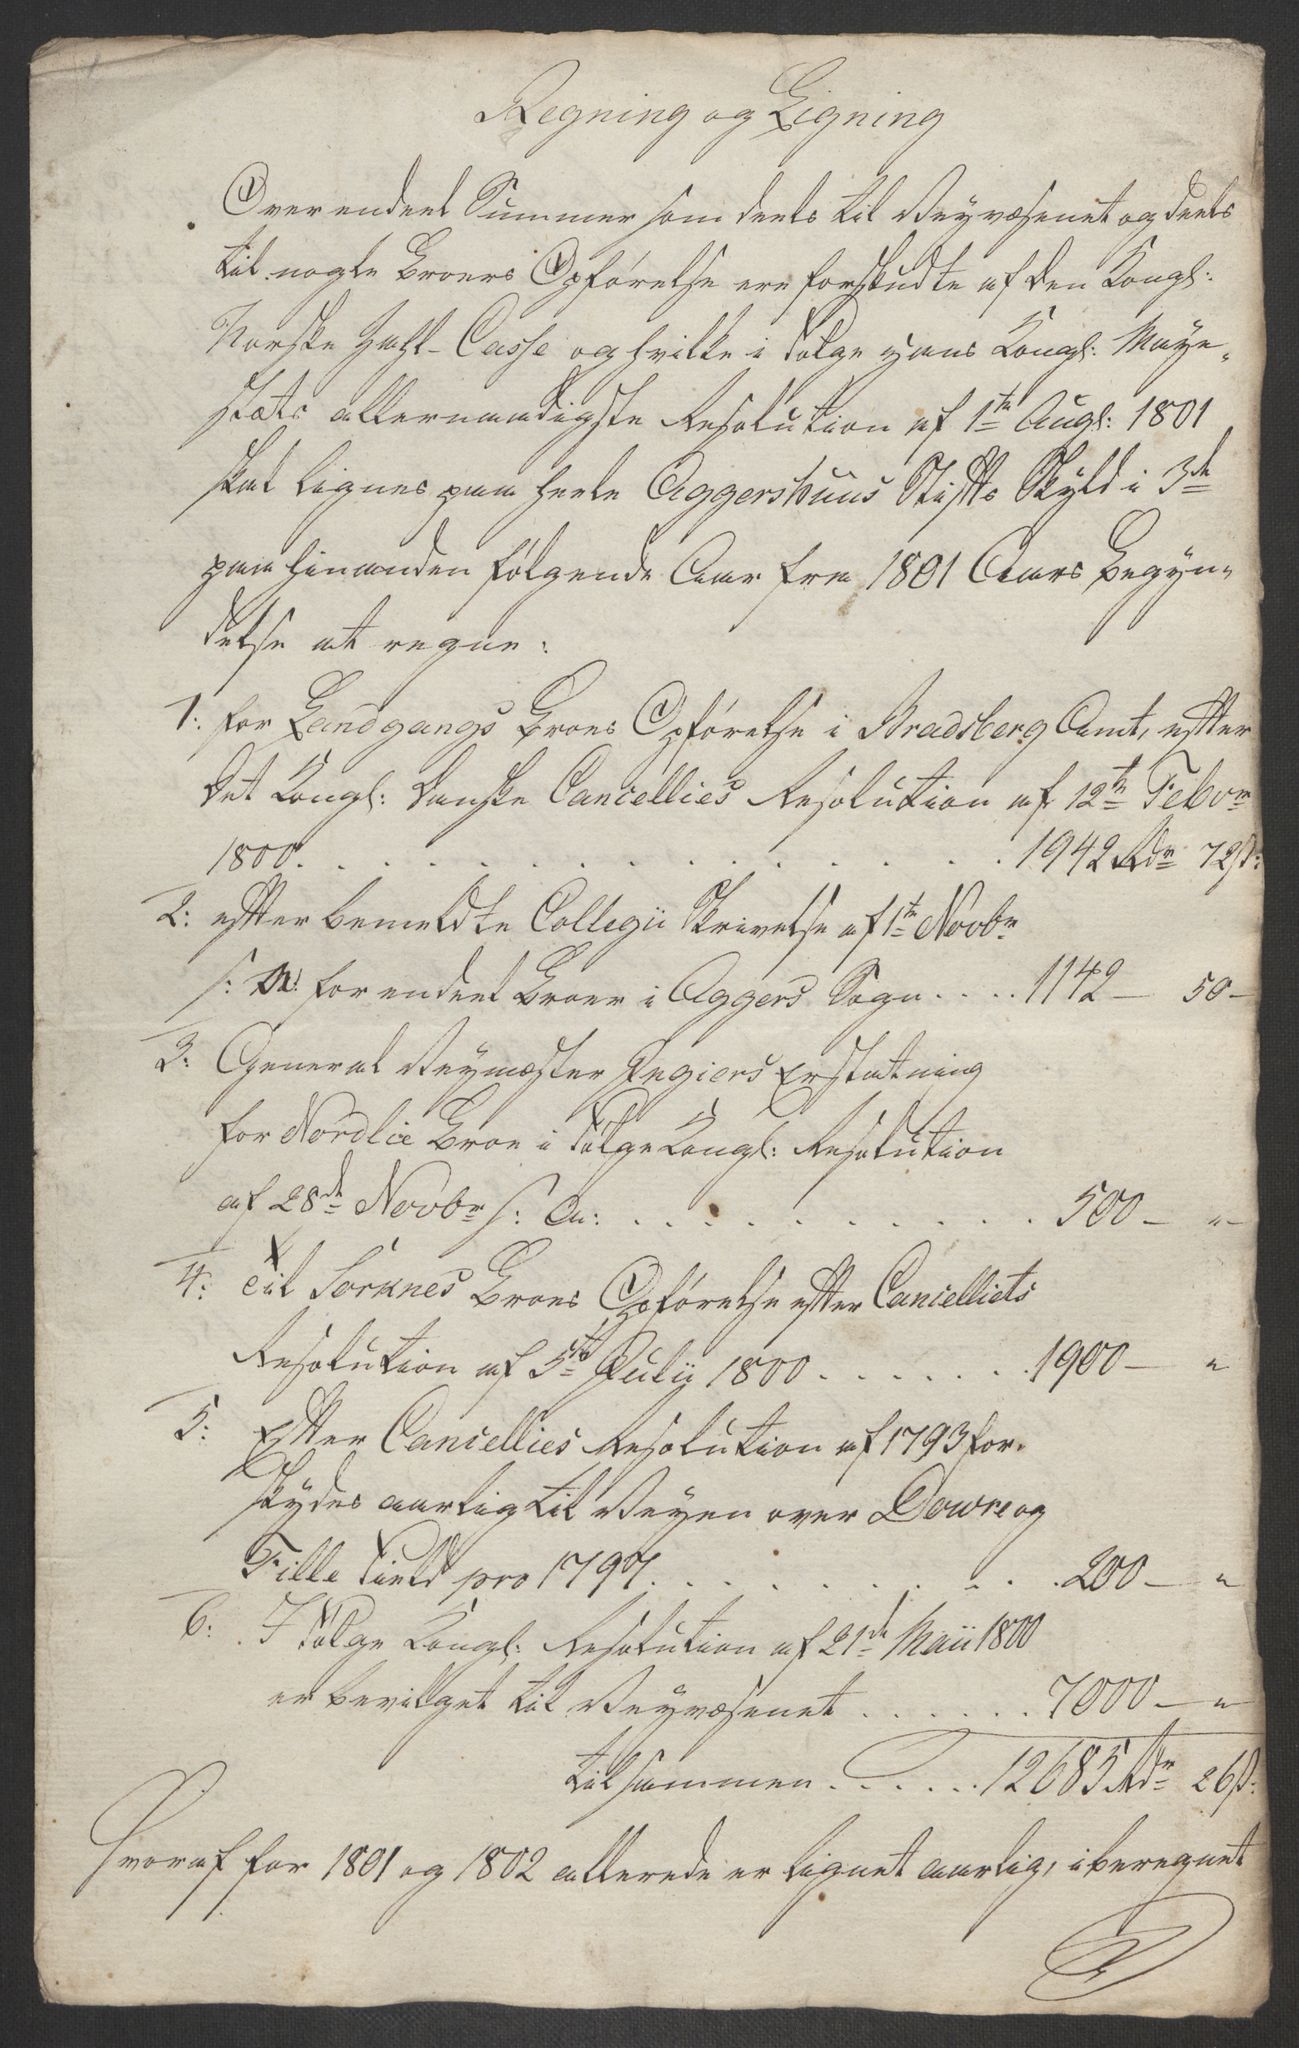 Regning og Ligning
Over endeel Summer som deels til Veyvæsenet og deels
til nogle Broers Opförelse ere forskudte af den Kongl:
Norske Zahl-Casse og hvilke i Følge hans Kongl: Maye-
stæts allernaadigste Resolution af 1te Augl: 1801
skal lignes paa heele Aggershuus Stifts Skyld i 3de
paa hinanden følgende Aar fra 1801 Aars Begyn-
delse at regne:
1: for Landgangs Broes Opförelse i Bradsberg Amt, efter
det Kongl: danske Cancellies Resolution af 12te Febr
1800. . . . . . . . . . . . . . 1942 Rdr 72 s:
2: efter bemeldte Collegii Skrivelse af 1te Novbr
s: A: for endeel Broer i Aggers Sogn . . . . 1142 — 50 —
3: General Veymester Pegiers Erstatning
for Nordlie Broe i Følge Kongl: Resolution
af 28de Novbr s: A: . . . . . . . . . . . 500 — "
4: Til Sorknes Broes Opförelse efter Cancelliets
Resolution af 5te Julij 1800 . . . . . . . 1900 — "
5: Efter Cancellies Resolution af 1793 for-
skydes aarlig til Veyen over Dowre og
Fille Field pro 1797. . . . . . . . . . 200 — "
6: I Følge Kongl: Resolution af 21de Maii 1800
er bevilget til Veyvæsenet . . . . . . 7000 — "
tilsammen . . . . . 12685 Rdr 26 s:
Hvoraf for 1801 og 1802 allerede er lignet aarlig, iberegnet